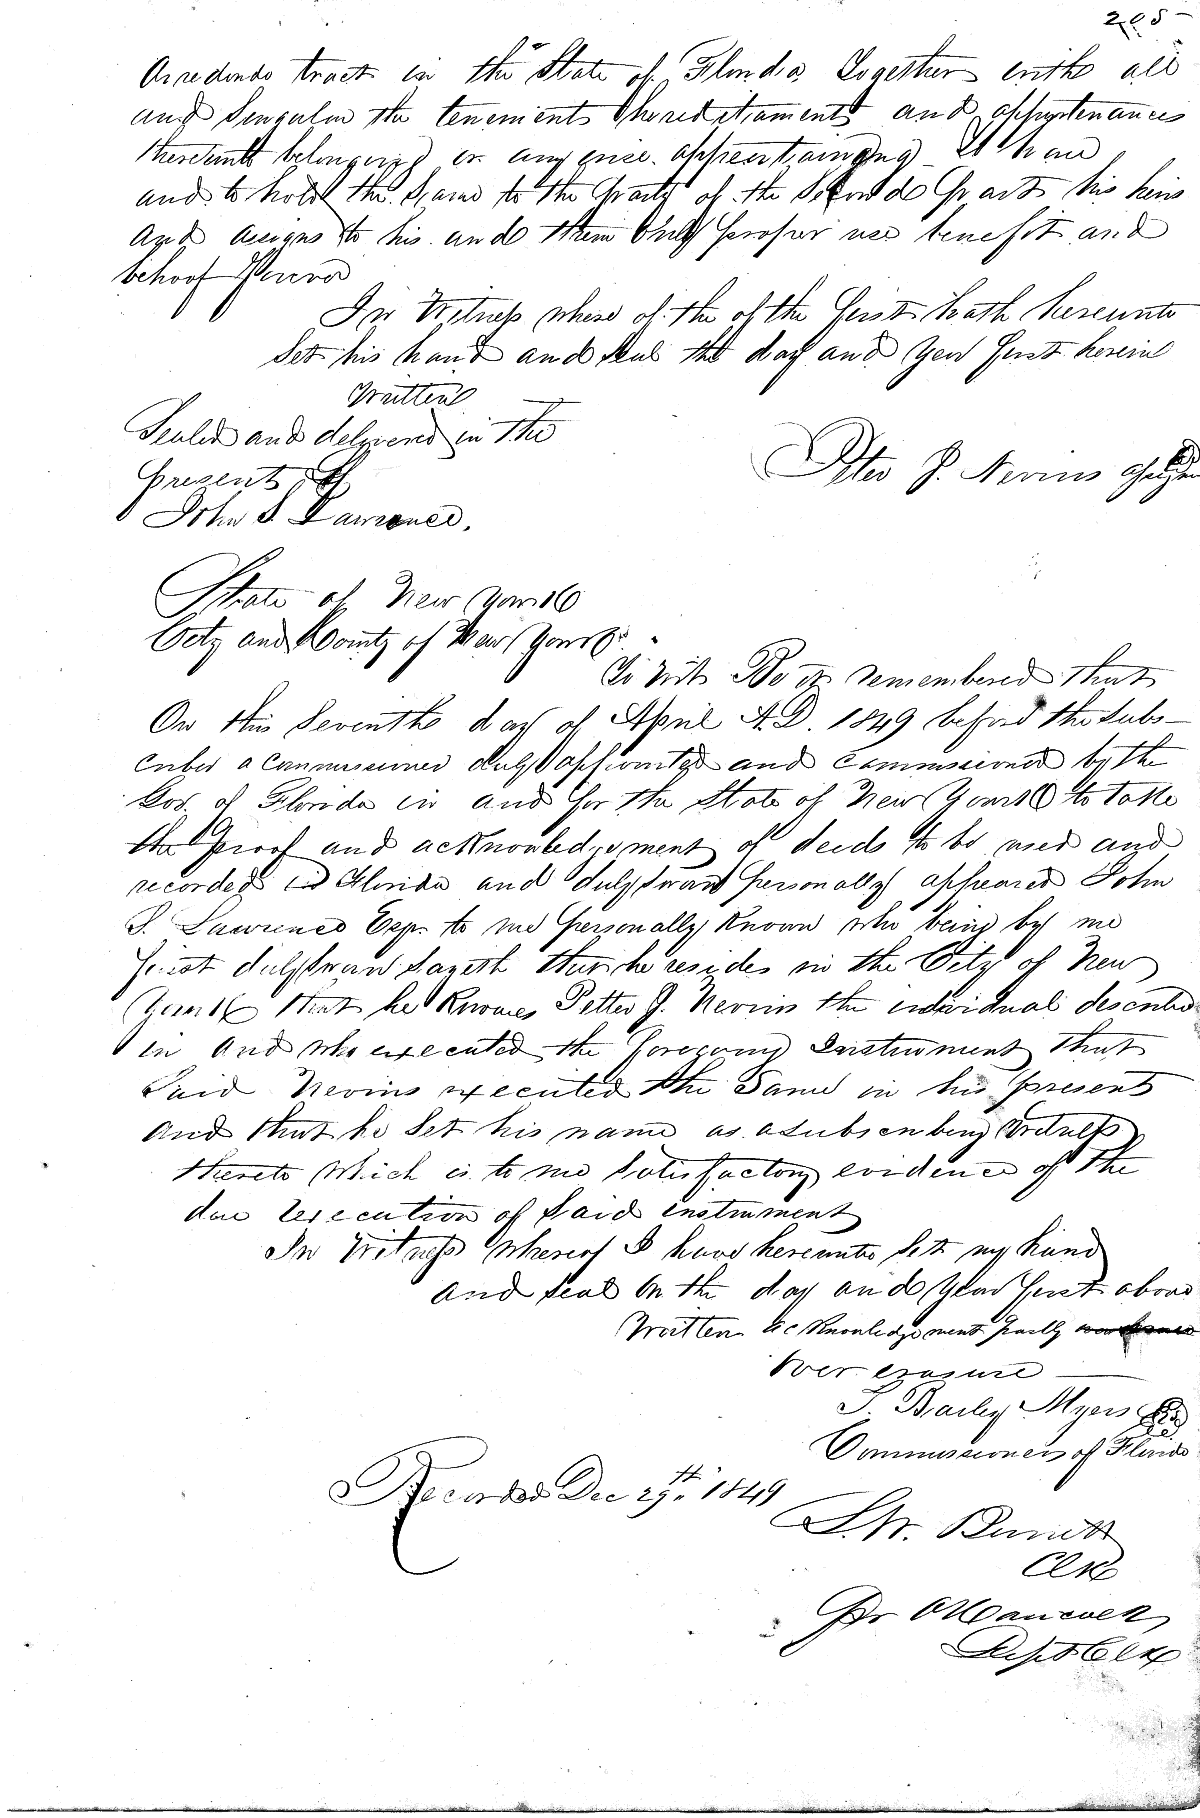 205
Arredondo tract in the State of Florida Together with all
and Singular the tenements Hereditaments and appurtenances
thereunto belonging or any wise appertaining To have
and to hold the Same to the party of the Second part his heirs
and assigns to his and them only proper use benefit and
behoof Forever
In Witness where of the of the first hath hereunto
Set his hand and seal the day and year first herein
Written
Sealed and delivered in the
present of
John S. Lawrence.
Peter J. Nevins
State of New York
City and County of New York
To wit Be it remembered that
On this Seventh day of April A.D. 1849 before the subs-
criber a commissioned duly appointed and commissioned by the
Gov. of Florida in and for the State of New York to take
the proof and acknowledgement of deeds to be used and
recorded in Florida and duly swan personally appeared John
S. Lawrence Esqr. to me personally Known who being by me
first duly swan sayeth that he resides in the City of New
York that he Knowes Petter J. Nevins the individual described
in and who executed the foregoing Instrument that
Said Nevins executed the Same in his present
and that he Set his name as a subscribing Witness
thereto which is to me Satisfactory evidence of the
due execution of Said instrument
In Witness whereof I have hereunto Set my hand
and seal on the day and year first above
Written acknowledgement partly
over erasure
T. Bailey Myers
Commissioners of Florida
Recorded Dec 29th 1849
Clk
Pr O Hancock
Dept Clk